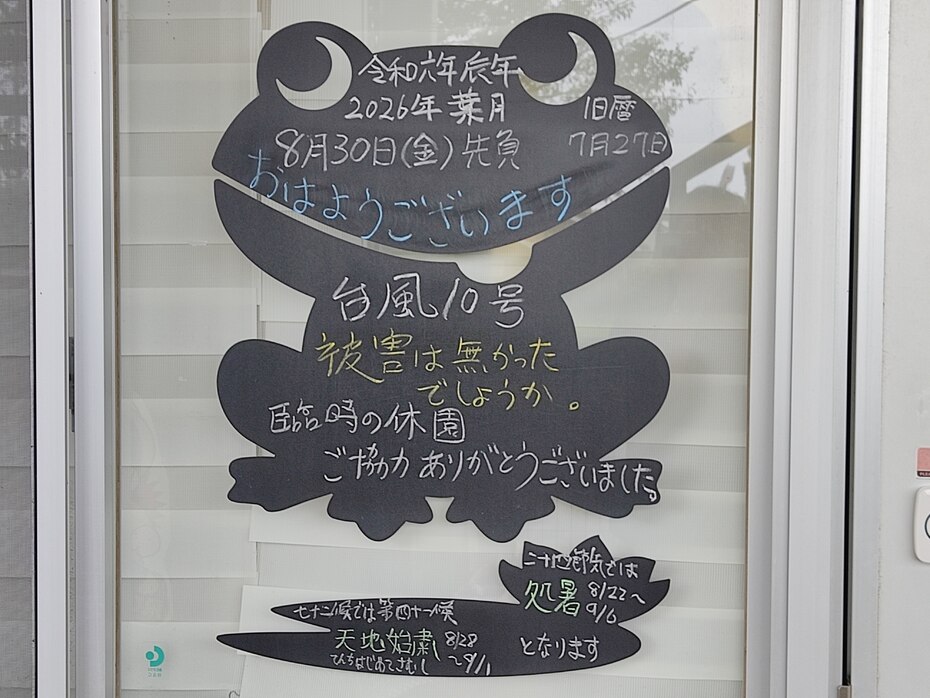 令和六年辰年
2026年葉月
旧暦
8月30日(金)先負
7月27日
おはようございます
台風10号
被害は無かった
でしょうか。
臨時の休園
ご協力ありがとうございました。
二十四節気では
処暑 8/22〜
9/6
七十二候では第四十一候
天地始粛 8/28
〜9/1
てんちはじめてさむし
となります